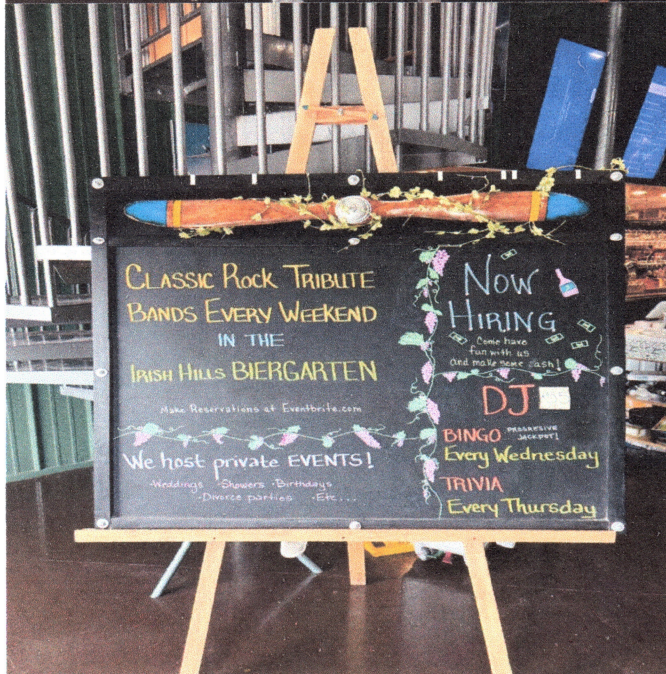 CLASSIC ROCK TRIBUTE
BANDS EVERY WEEKEND
IN THE
IRISH HILLS BIERGARTEN
Make Reservations at Eventbrite.com
We host private EVENTS!
·Weddings ·Showers ·Birthdays
·Divorce parties ·Etc...
NOW
HIRING
Come have
fun with us
and make some cash!
DJ
BINGO PROGRESSIVE
JACKPOT!
Every Wednesday
TRIVIA
Every Thursday